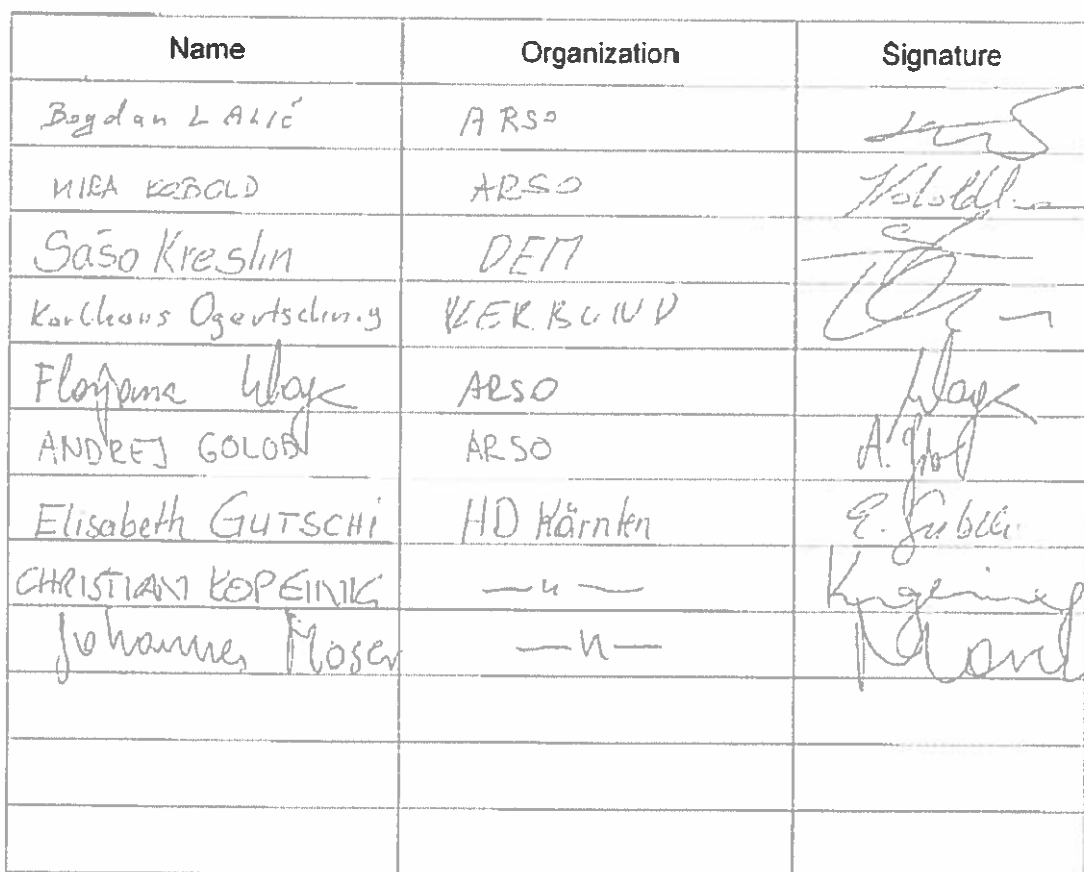 Name Organization Signature
Bogdan LALIĆ ARSO
MIRA KOBOLD ARSO
Sašo Kreslin DEM
Karlheinz Ogertschnig VERBUND
Florjana Ulaga ARSO
ANDREJ GOLOB ARSO A. Golob
Elisabeth GUTSCHI HD Kärnten E. Gutschi
CHRISTIAN KOPEINIG —"— Kopeinig
Johannes Moser —"—